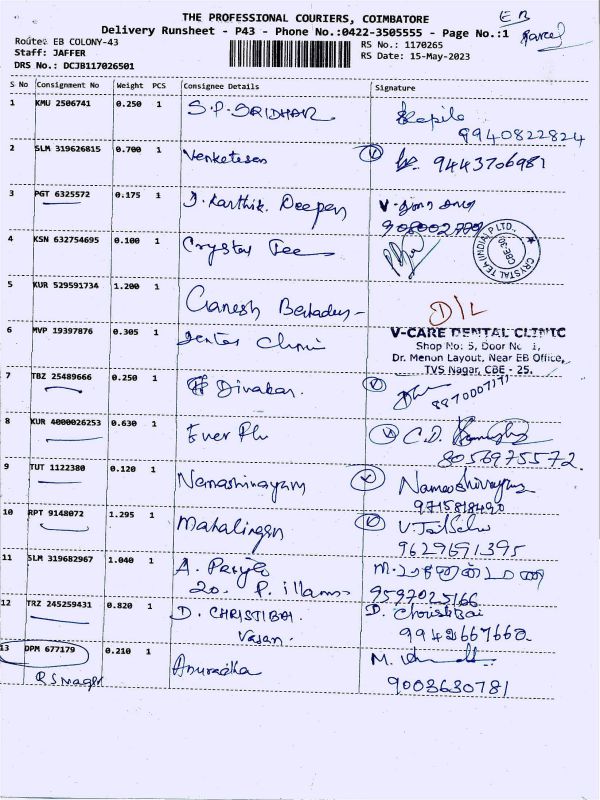 THE PROFESSIONAL COURIERS, COIMBATORE
EB
Parcel
Delivery Runsheet - P43 - Phone No.:0422-3505555 - Page No.:1
Route: EB COLONY-43
RS No.: 1170265
Staff: JAFFER
RS Date: 15-May-2023
DRS No.: DCJB117026501
S No Consignment No Weight PCS Consignee Details Signature
1 KMU 2506741 0.250 1 S.P. SRIDHAR Kapila
9940822824
2 SLM 319626815 0.700 1 Venketesan 9443706981
3 PGT 6325572 0.175 1 D. Karthik Deepen
4 KSN 632754695 0.100 1 Crystal Tee
CRYSTAL TEA (INDIA) P LTD., CBE-30
5 KUR 529591734 1.200 1 Ganesh
D/L
6 MVP 19397876 0.305 1 Dental Clinic
V-CARE DENTAL CLINIC
Shop No: 5, Door No 1,
Dr. Menon Layout, Near EB Office,
TVS Nagar, CBE - 25.
7 TBZ 25489666 0.250 1 Divakar 8870007171
8 KUR 4000026253 0.630 1 Ever C.D.
8056975572
9 TUT 1122380 0.120 1 Namashivayam Nameshivayam
9715818490
10 RPT 9148072 1.295 1 Mahalingam
9629691395
11 SLM 319682967 1.040 1 A.
20. P. illam
9597025166
12 TRZ 245259431 0.820 1 D. CHRISTIBAI D. Christibai
Vasan.
9942667662
13 DPM 677179 0.210 1 Anuradha M.
RS Nagar
9003630781